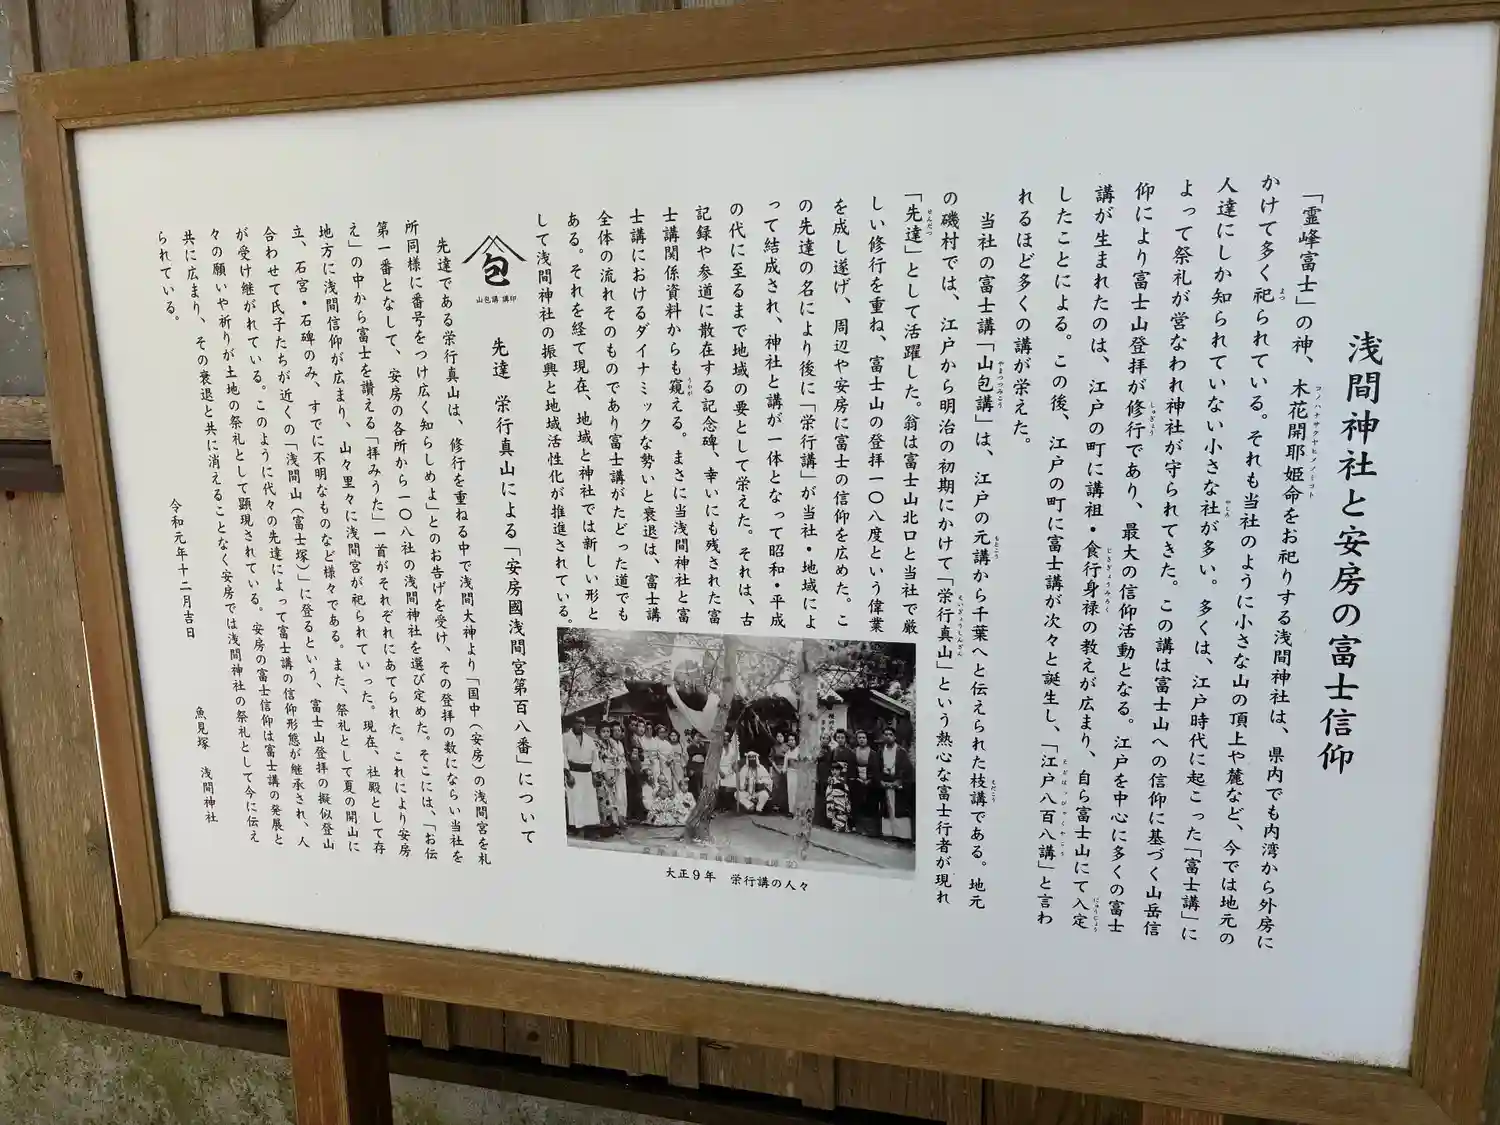 浅間神社と安房の富士信仰
「霊峰富士」の神、木花開耶姫命をお祀りする浅間神社は、県内でも内湾から外房に
かけて多く祀られている。それも当社のように小さな山の頂上や麓など、今では地元の
人達にしか知られていない小さな社が多い。多くは、江戸時代に起こった「富士講」に
よって祭礼が営なわれ神社が守られてきた。この講は富士山への信仰に基づく山岳信
仰により富士山登拝が修行であり、最大の信仰活動となる。江戸を中心に多くの富士
講が生まれたのは、江戸の町に講祖・食行身禄の教えが広まり、自ら富士山にて入定
したことによる。この後、江戸の町に富士講が次々と誕生し、「江戸八百八講」と言わ
れるほど多くの講が栄えた。
当社の富士講「山包講」は、江戸の元講から千葉へと伝えられた枝講である。地元
の磯村では、江戸から明治の初期にかけて「栄行真山」という熱心な富士行者が現れ
「先達」として活躍した。翁は富士山北口と当社で厳
しい修行を重ね、富士山の登拝一〇八度という偉業
を成し遂げ、周辺や安房に富士の信仰を広めた。こ
の先達の名により後に「栄行講」が当社・地域によ
って結成され、神社と講が一体となって昭和・平成
の代に至るまで地域の要として栄えた。それは、古
記録や参道に散在する記念碑、幸いにも残された富
士講関係資料からも窺える。まさに当浅間神社と富
士講におけるダイナミックな勢いと衰退は、富士講
全体の流れそのものであり富士講がたどった道でも
ある。それを経て現在、地域と神社では新しい形と
して浅間神社の振興と地域活性化が推進されている。
大正9年 栄行講の人々
包
山包講 講印
先達 栄行真山による「安房國浅間宮第百八番」について
先達である栄行真山は、修行を重ねる中で浅間大神より「国中（安房）の浅間宮を札
所同様に番号をつけ広く知らしめよ」とのお告げを受け、その登拝の数にならい当社を
第一番となして、安房の各所から一〇八社の浅間神社を選び定めた。そこには、「お伝
え」の中から富士を讃える「拝みうた」一首がそれぞれにあてられた。これにより安房
地方に浅間信仰が広まり、山々里々に浅間宮が祀られていった。現在、社殿として存
立、石宮・石碑のみ、すでに不明なものなど様々である。また、祭礼として夏の開山に
合わせて氏子たちが近くの「浅間山（富士塚）」に登るという、富士山登拝の擬似登山
が受け継がれている。このように代々の先達によって富士講の信仰形態が継承され、人
々の願いや祈りが土地の祭礼として顕現されている。安房の富士信仰は富士講の発展と
共に広まり、その衰退と共に消えることなく安房では浅間神社の祭礼として今に伝え
られている。
令和元年十二月吉日
魚見塚 浅間神社